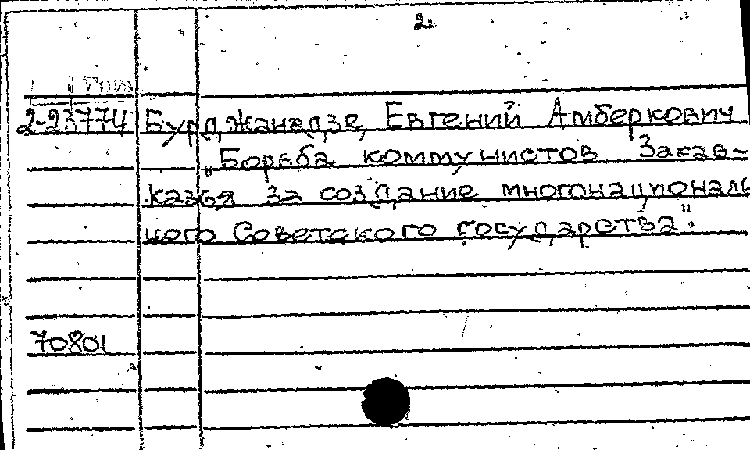 2.
2-23774 Бурджанадзе, Евгений Амберкович
"Борьба коммунистов Закав-
казья за создание многонациональ
ного Советского государства".
70801